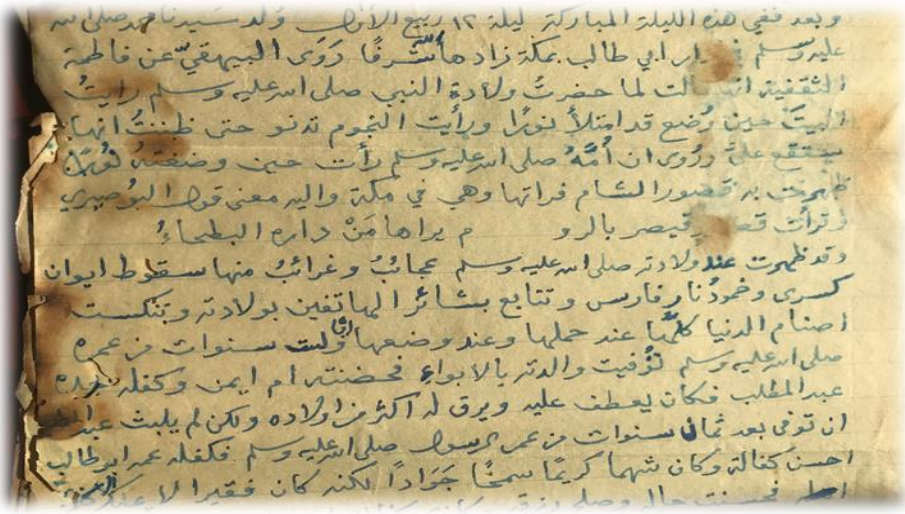 وبعد ففي هذه الليلة المباركة ليلة ١٢ ربيع الأول وُلد سيدنا محمد صلى الله
عليه وسلم في دار ابي طالب بمكة زادها شرفًا رَوَى البيهقيّ عن فاطمة
الثقفية انها قالت لما حضرتُ ولادة النبي صلى الله عليه وسلم رايتُ
البيتَ حين وُضع قد امتلأ نورًا ورأيت النجوم تدنو حتى ظننتُ انها
ستقع عليَّ ورُوى ان أُمَّهُ صلى الله عليه وسلم رأت حين وضعَتهُ نُورًا
ظهرت به قصور الشام فراتها وهي في مكة واليه معنى قول البُوصيري
وترأت قصور قيصر بالرو م يراها مَنْ داره البطحاءُ
وقد ظهرت عند ولادته صلى الله عليه وسلم عجائبُ وغرائبُ منها سقوط ايوان
كسرى وخمودُ نار فارس وتتابع بشائر الهاتفين بولادته وتنكست
اصنام الدنيا كلها عند حملها وعند وضعها ولست سنوات من عمره
صلى الله عليه وسلم توُفيت والدته بالابواءِ فحضنته ام ايمن وكفله جده
عبد المطلب فكان يعطف عليه ويرق له اكثر من اولاده ولكن لم يلبث عبد المطلب
ان توفى بعد ثمان سنوات من عمر الرسول صلى الله عليه وسلم فكفله عمه ابو طالب
احسنَ كفالة وكان شهما كريمًا سمحًا جَوَادًا لكنه كان فقيرا لا
فحسنت حاله